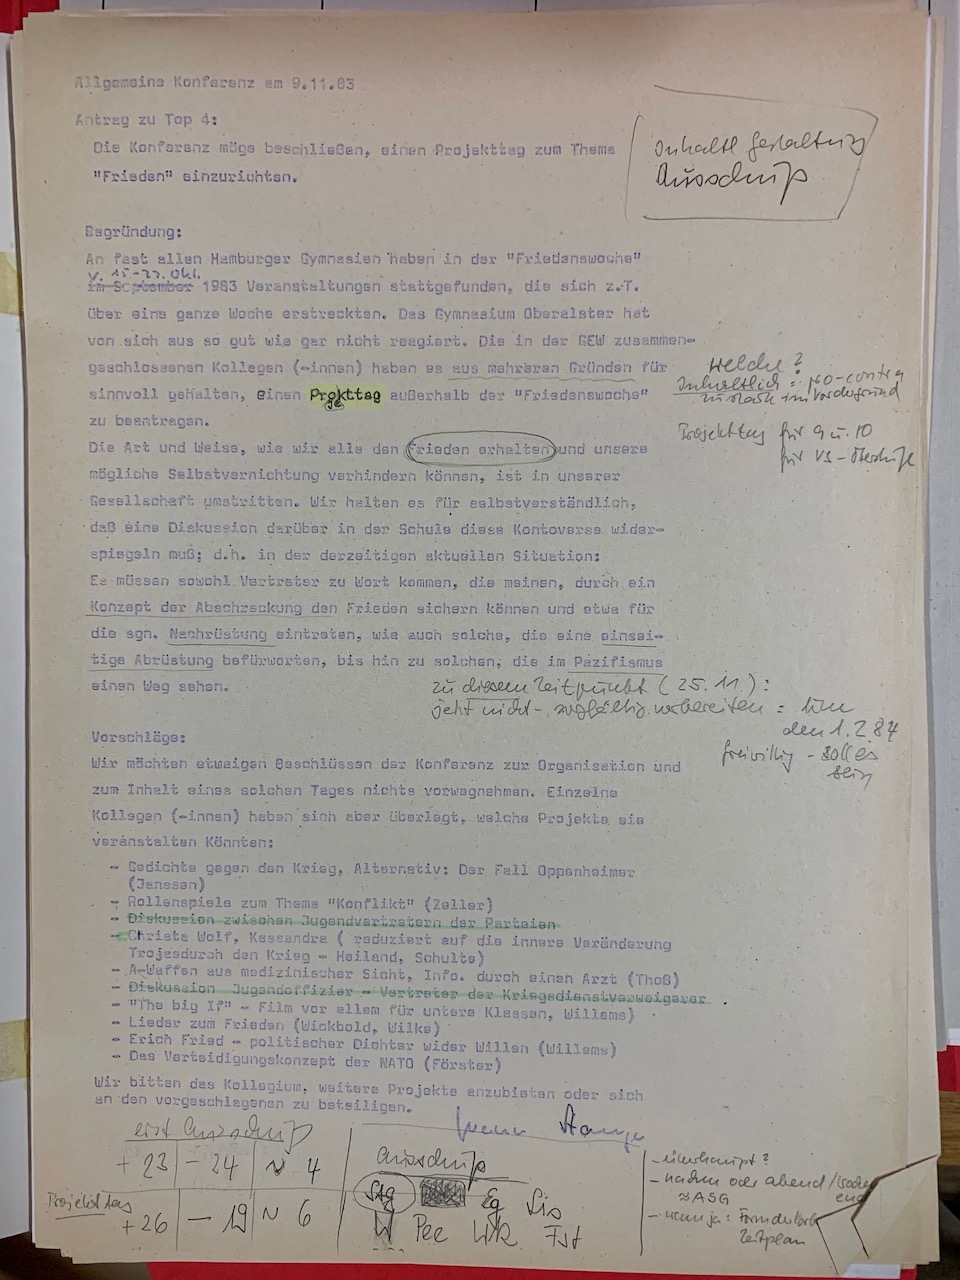 Allgemeine Konferenz am 9.11.83
Antrag zu Top 4:
Die Konferenz möge beschließen, einen Projekttag zum Thema
"Frieden" einzurichten.
Inhaltl Gestaltung
Ausschuß
Begründung:
An fast allen Hamburger Gymnasien haben in der "Friedenswoche"
v. 15-22. Okt.
im September 1983 Veranstaltungen stattgefunden, die sich z.T.
über eine ganze Woche erstreckten. Das Gymnasium Oberalster hat
von sich aus so gut wie gar nicht reagiert. Die in der GEW zusammen-
geschlossenen Kollegen (-innen) haben es aus mehreren Gründen für
sinnvoll gehalten, einen Projekttag außerhalb der "Friedenswoche"
zu beantragen.
welche?
Inhaltlich: pro-contra
zu stark im Vordergrund
Projekttag für 9 u. 10
für VS-Oberstufe
Die Art und Weise, wie wir alle den Frieden erhalten und unsere
mögliche Selbstvernichtung verhindern können, ist in unserer
Gesellschaft umstritten. Wir halten es für selbstverständlich,
daß eine Diskussion darüber in der Schule diese Kontoverse wider-
spiegeln muß; d.h. in der derzeitigen aktuellen Situation:
Es müssen sowohl Vertreter zu Wort kommen, die meinen, durch ein
Konzept der Abschreckung den Frieden sichern können und etwa für
die sgn. Nachrüstung eintreten, wie auch solche, die eine einsei-
tige Abrüstung befürworten, bis hin zu solchen, die im Pazifismus
einen Weg sehen.
zu diesem Zeitpunkt (25.11.):
jetzt nicht - sorgfältig vorbereiten =
den 1.2.84
freiwillig - soll es
sein
Vorschläge:
Wir möchten etwaigen Beschlüssen der Konferenz zur Organisation und
zum Inhalt eines solchen Tages nichts vorwegnehmen. Einzelne
Kollegen (-innen) haben sich aber überlegt, welche Projekte sie
veranstalten Könnten:
- Gedichte gegen den Krieg, Alternativ: Der Fall Oppenheimer
(Janssen)
- Rollenspiele zum Thema "Konflikt" (Zeller)
- Diskussion zwischen Jugendvertretern der Parteien
- Christa Wolf, Kassandra ( reduziert auf die innere Veränderung
Trojasdurch den Krieg - Heiland, Schulte)
- A-Waffen aus medizinischer Sicht, Info. durch einen Arzt (Thoß)
- Diskussion Jugendoffizier - Vertreter der Kriegsdienstverweigerer
- "The big If" - Film vor allem für untere Klassen, Willems)
- Lieder zum Frieden (Wickbold, Wilke)
- Erich Fried - politischer Dichter wider Willen (Willems)
- Das Verteidigungskonzept der NATO (Förster)
Wir bitten das Kollegium, weitere Projekte anzubieten oder sich
an den vorgeschlagenen zu beteiligen.
erst Ausschuß
+ 23 - 24 ~ 4
Projekttag
+26 - 19 ~ 6
Ausschuß
Stg Eg Sis
Pee Wk Fst
- überhaupt?
- nachm oder abend/Wochen
end
≈ ASG
- wenn ja: Form der Vorb
Zeitplan